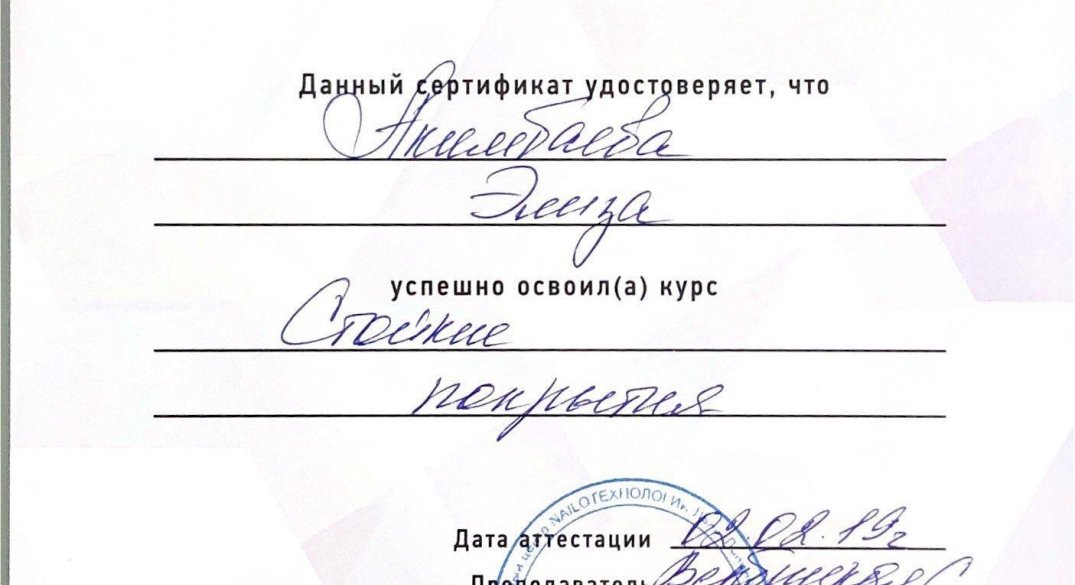 Данный сертификат удостоверяет, что
Акимбаева
Элиза
успешно освоил(а) курс
Стойкие
покрытия
NAILOТЕХНОЛОГИИ
Дата аттестации 02.02.19г
Преподаватель